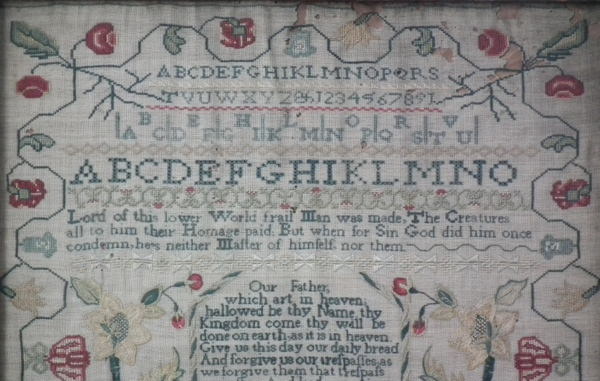 ABCDEFGHIKLMNOPQRS
TVUWXYZ&1234567891
A B C D E F G H I K L M N O P Q R S T V U
ABCDEFGHIKLMNO
Lord of this lower World frail Man was made, The Creatures
all to him their Homage paid. But when for Sin God did him once
condemn, hes neither Master of himself nor them.
Our Father,
which art in heaven,
hallowed be thy Name, thy
Kingdom come thy will be
done on earth as it is in heaven.
Give us this day our daily bread
And forgive us our treſpaſſes as
we forgive them that treſpaſs